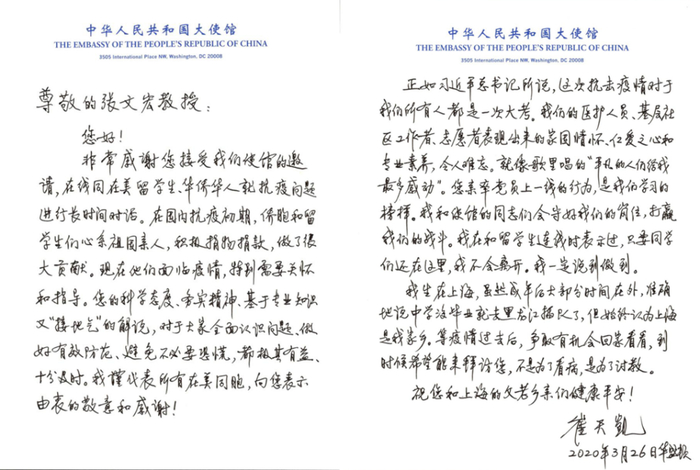 中华人民共和国大使馆
THE EMBASSY OF THE PEOPLE'S REPUBLIC OF CHINA
3505 International Place NW, Washington, DC 20008
尊敬的张文宏教授：
您好！
非常感谢您接受我们使馆的邀
请，在线同在美留学生、华侨华人就抗疫问题
进行长时间对话。在国内抗疫初期，侨胞和留
学生们心系祖国亲人，积极捐物捐款，做了很
大贡献。现在他们面临疫情，特别需要关怀
和指导。您的科学态度、务实精神、基于专业知识
又“接地气”的解说，对于大家全面认识问题、做
好有效防范、避免不必要恐慌，都极其有益、
十分及时。我谨代表所有在美同胞，向您表示
由衷的敬意和感谢！
中华人民共和国大使馆
THE EMBASSY OF THE PEOPLE'S REPUBLIC OF CHINA
3505 International Place NW, Washington, DC 20008
正如习近平总书记所说，这次抗击疫情对于
我们所有人都是一次大考。我们的医护人员、基层社
区工作者、志愿者表现出来的家国情怀、仁爱之心和
专业素养，令人难忘。就像歌里唱的“平凡的人们给我
最多感动”。您亲率党员上一线的行为，是我们学习的
榜样。我和使馆的同志们会守好我们的岗位，打赢
我们的战斗。我在和留学生连线时表示过，只要同学
们还在这里，我不会离开。我一定说到做到。
我生在上海，虽然成年后大部分时间在外，准确
地说中学没毕业就去黑龙江插队了，但始终认为上海
是我家乡。等疫情过去后，争取有机会回家看看，到
时候希望能来拜访您，不是为了看病，是为了讨教。
祝您和上海的父老乡亲们健康平安！
崔天凯
2020年3月26日华盛顿